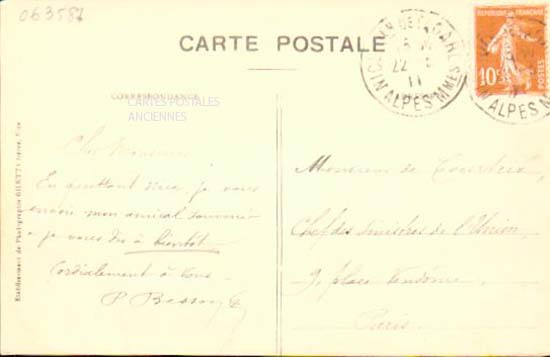 063581
CARTE POSTALE
REPUBLIQUE FRANÇAISE
10c
POSTES
22
11
ALPES MMES
CORRESPONDANCE
CARTES POSTALES
ANCIENNES
Cher Monsieur
En quittant Nice, je vous
envoie mon amical souvenir
& je vous dis à bientôt.
Cordialement à vous
P. Besson
Monsieur de
Chef des sinistres de l'Union
9, place Vendôme
Paris
Etablissement de Photographie GILETTA frères, Nice